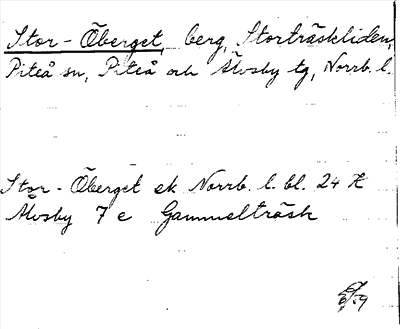 Stor-Öberget, berg, Storträskliden,
Piteå sn, Piteå och Älvsby tg, Norrb. l.
Stor-Öberget ek. Norrb. l. bl. 24 H
Älvsby 7 e Gammelträsk